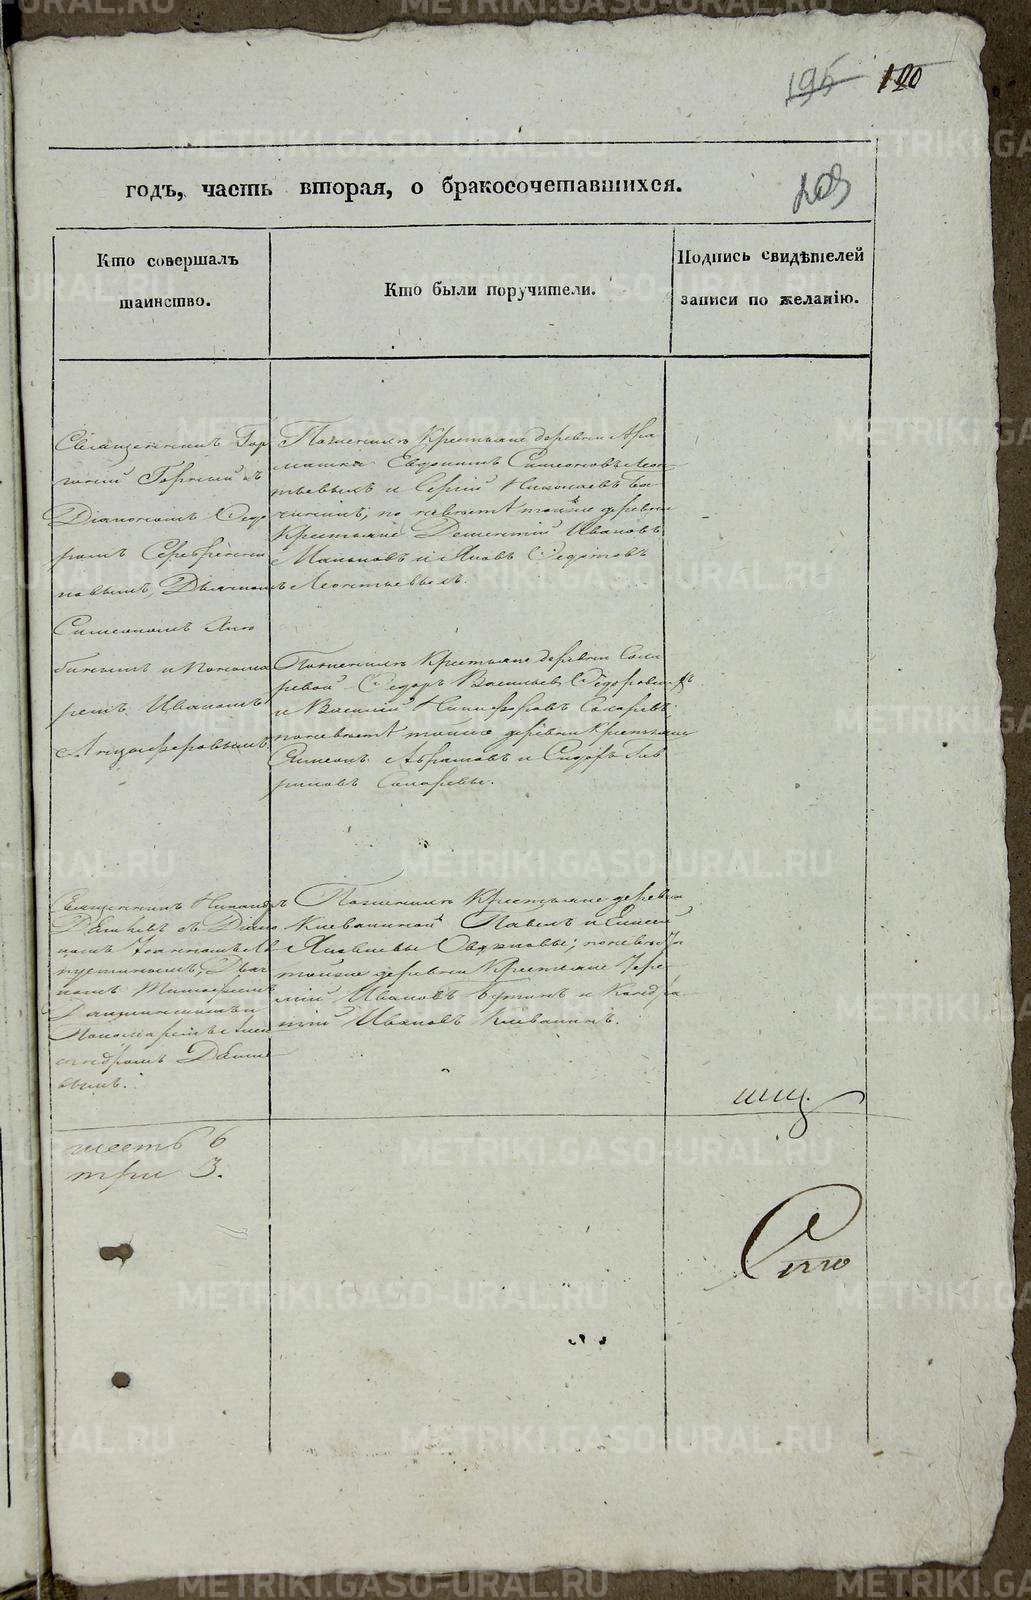 195 120
годъ, часть вторая, о бракосочетавшихся.
203
Кто совершалъ
таинство.
Кто были поручители.
Подпись свидѣтелей
записи по желанію.
Священникъ Гор
гоній Горный съ
Діакономъ Ѳедо
ромъ Серебренни
ковымъ, Дьячкомъ
Симеономъ Хлю
бинымъ и понома
ремъ Иваномъ
Анциферовымъ.
По женихѣ Крестьяне деревни Ара
машки Евдокимъ Симеоновъ Леон
тьевыхъ и Сергій Николаевъ
по невѣстѣ тойже деревни
Крестьяне Дементій Ивановъ
Маньковъ и Яковъ Ѳедотовъ
Леонтьевыхъ.
По женихѣ Крестьяне деревни Сока
ревой Ѳедоръ Васильевъ Ѳедоровыхъ
и Василій Никифоровъ Сохаревъ;
по невѣстѣ тойже деревни Крестьяне
Симеонъ Абрамовъ и Сидоръ Гав
риловъ Сохаревы.
Священникъ Никаноръ
Дѣшневъ съ Діако
номъ Іоанномъ
Дьяч
комъ Тимофеемъ
Пономаремъ Алек
сандромъ
По женихѣ Крестьяне деревни
Клевакиной Павелъ и Елисей
Яковлевы; по невѣстѣ
тойже деревни Крестьяне Іере
мій Ивановъ и Кондра
тій Ивановъ Клевакинъ.
шесть 6
три 3.